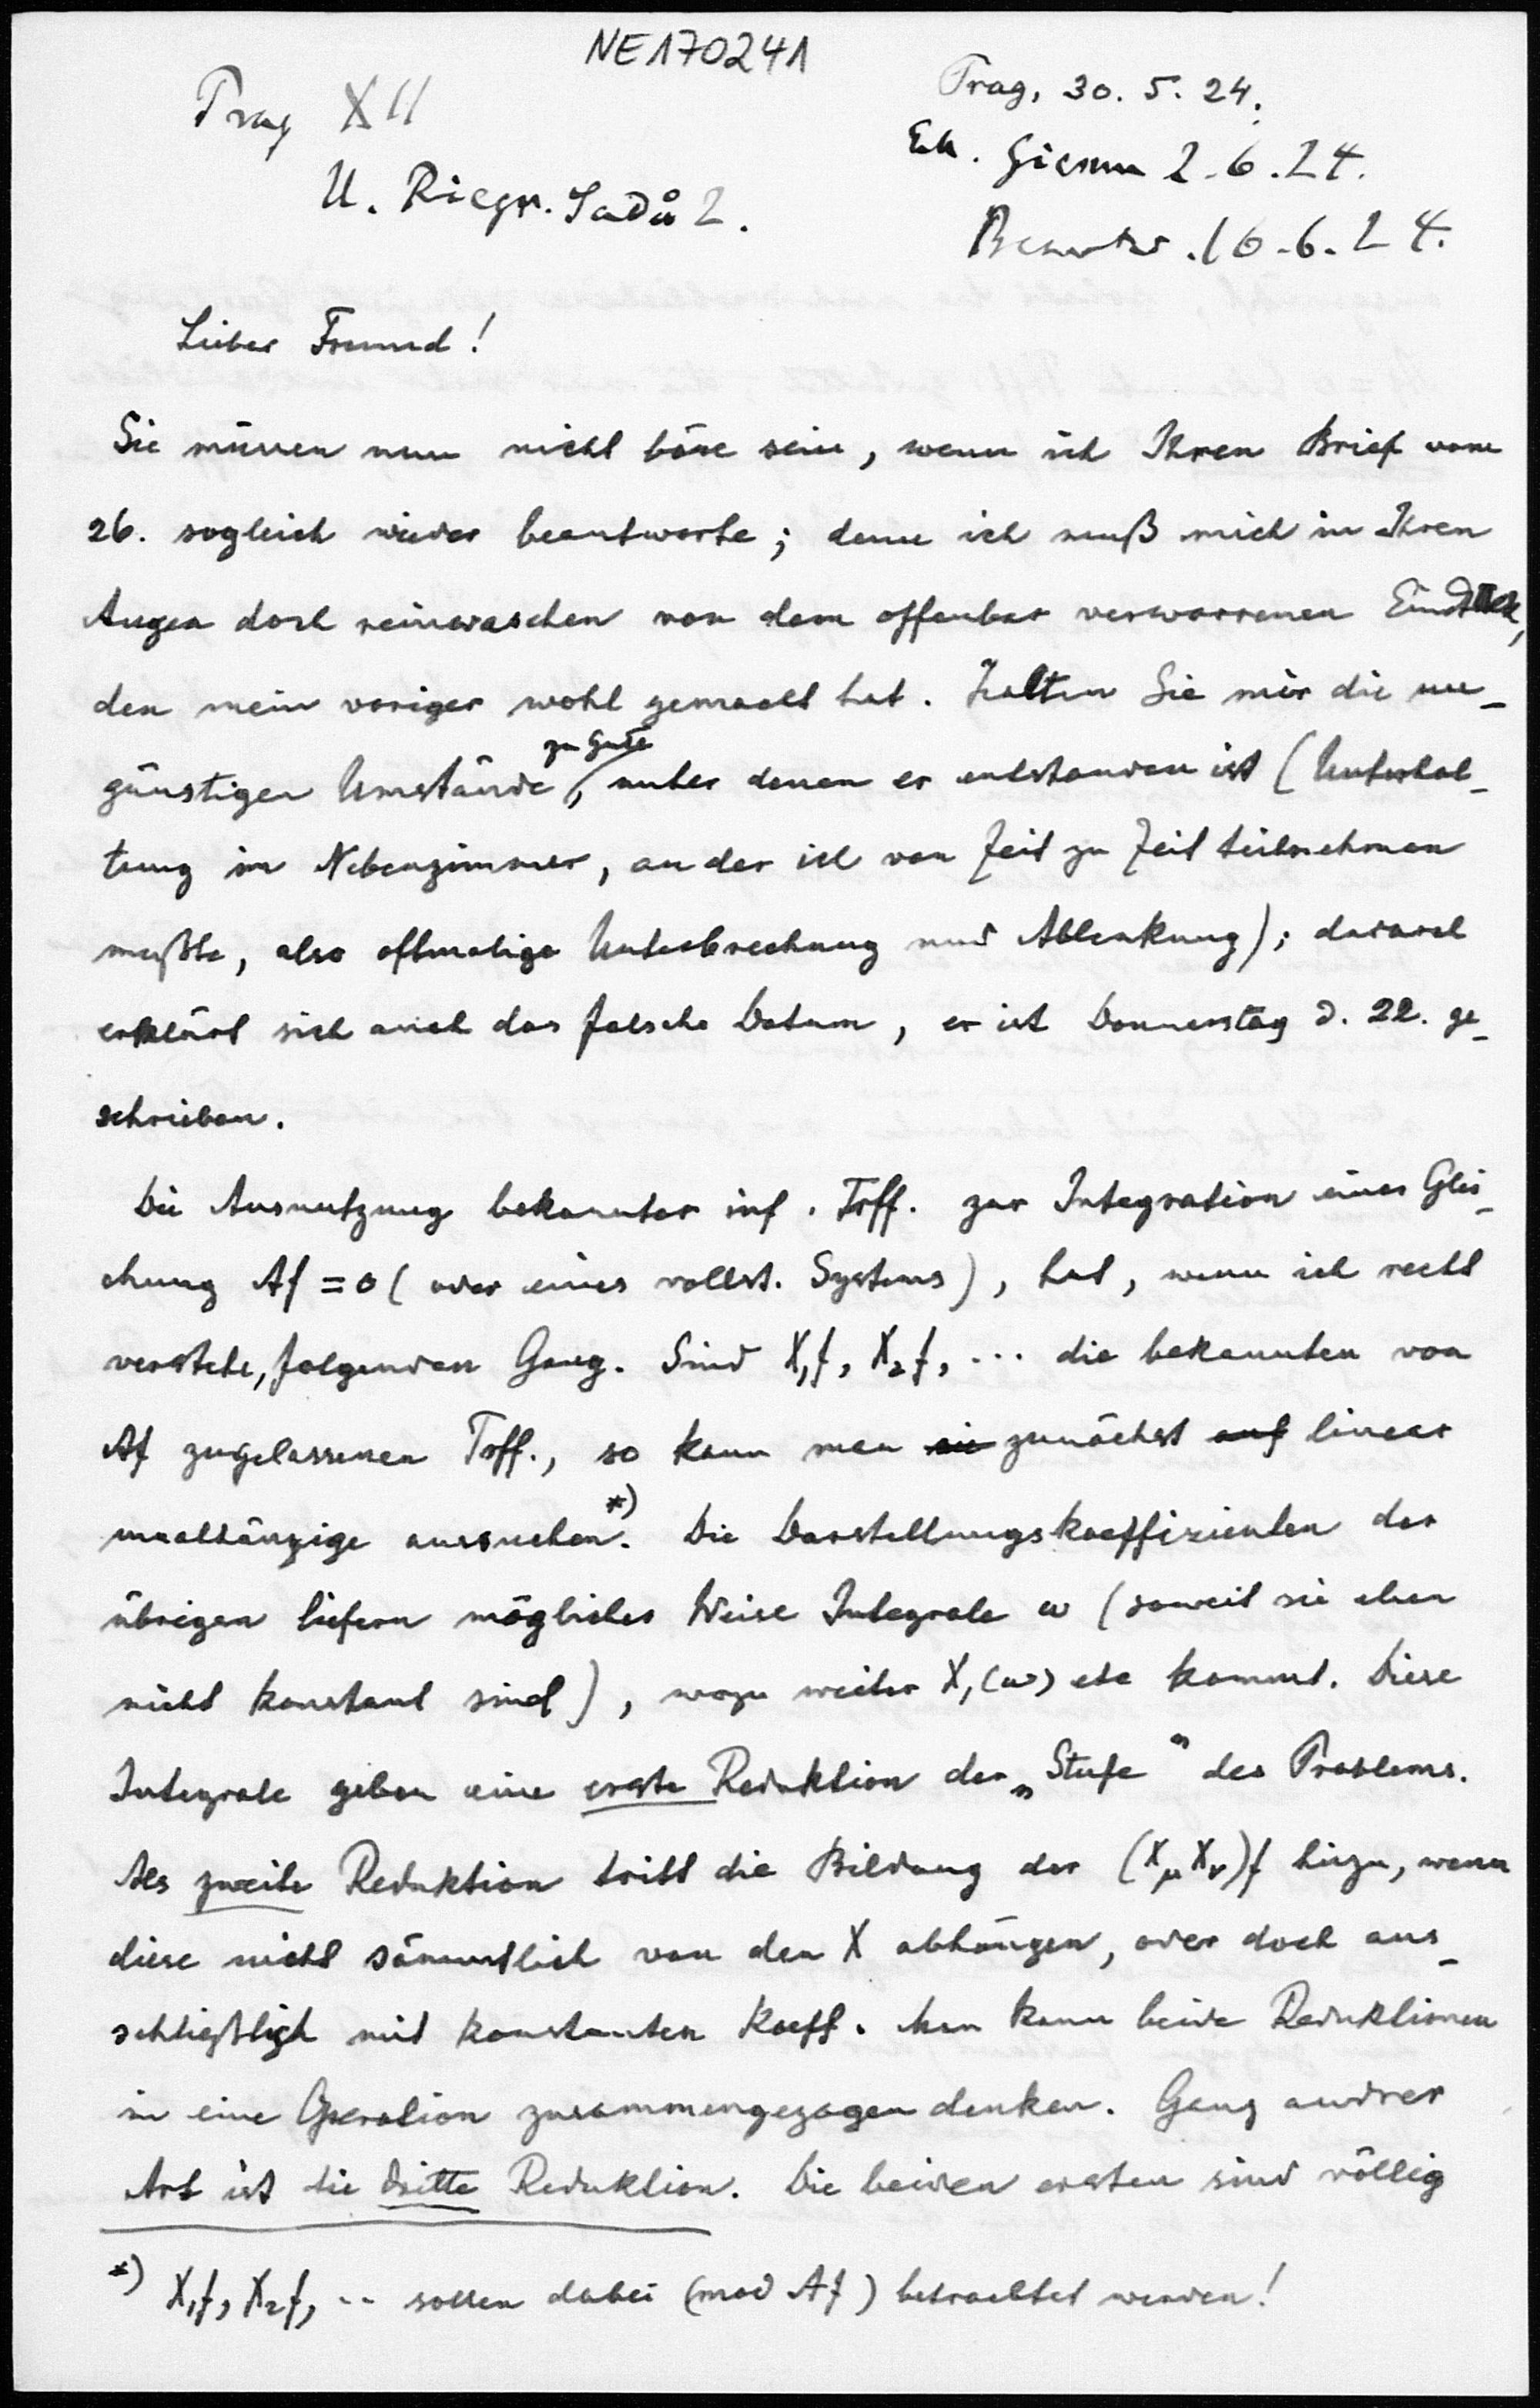 NE170241
Prag XII
U. Riegr. Sadů 2.
Prag, 30. 5. 24.
Erh. Giessen 2.6.24.
Beantw. 16.6.24.
Lieber Freund!
Sie müssen nun nicht böse sein, wenn ich Ihren Brief vom
26. sogleich wieder beantworte; denn ich muß mich in Ihren
Augen doch reinwaschen von dem offenbar verworrenen Eindruck,
den mein voriger wohl gemacht hat. Halten Sie mir die un-
günstigen Umstände zu Gute, unter denen er entstanden ist (Unterhal-
tung im Nebenzimmer, an der ich von Zeit zu Zeit teilnehmen
mußte, also oftmalige Unterbrechung und Ablenkung); dadurch
erklärt sich auch das falsche Datum, er ist Donnerstag d. 22. ge-
schrieben.
Die Ausnutzung bekannter inf. Trff. zur Integration einer Glei-
chung Af = 0 (oder eines vollst. Systems), hat, wenn ich recht
verstehe, folgenden Gang. Sind X₁f, X₂f, ... die bekannten von
Af zugelassenen Trff., so kann man sie zunächst auf linear
unabhängige aussuchen*). Die Darstellungskoeffizienten der
übrigen liefern möglicher Weise Integrale ω (soweit sie eben
nicht konstant sind), wozu weiter X₁(ω) etc kommt. Diese
Integrale geben eine erste Reduktion der „Stufe“ des Problems.
Als zweite Reduktion tritt die Bildung der (X_μ X_ν)f hinzu, wenn
diese nicht sämmtlich von den X abhängen, oder doch aus-
schließlich mit konstanten Koeff. Man kann beide Reduktionen
in eine Operation zusammengezogen denken. Ganz andrer
Art ist die dritte Reduktion. Die beiden ersten sind völlig
*) X₁f, X₂f, .. sollen dabei (mod Af) betrachtet werden!